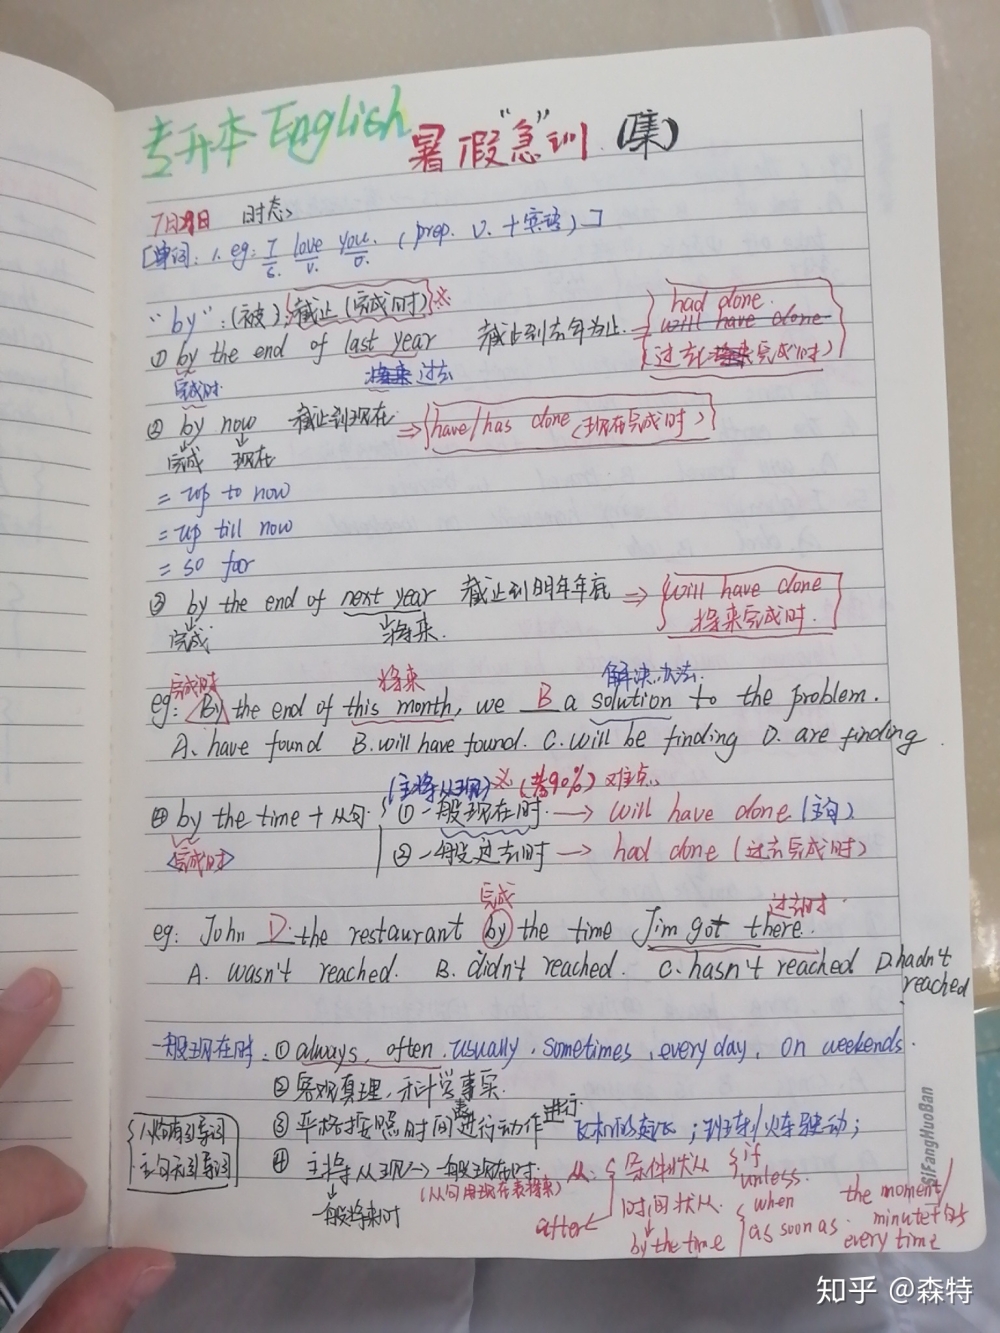 专升本 English 暑假"急"训 (集)
7月29日 时态
[单词: 1. eg: I love you. (prep. v. + 宾语)]
s. v. o.
"by": (被); 截止 (完成时) ※
① by the end of last year 截止到去年为止 → had done
will have done
(过去将来完成时)
完成时 将来 过去
② by now 截止到现在 ⇒ have/has done (现在完成时)
完成 现在
= up to now
= up till now
= so far
③ by the end of next year 截止到明年年底 ⇒ will have done
将来完成时
完成 将来
完成时 将来 解决办法
eg: By the end of this month, we B a solution to the problem.
A. have found B. will have found. C. will be finding D. are finding
(主将从现) ※ (考90%) 难点
④ by the time + 从句 ① 一般现在时 → will have done (主句)
<完成时> ② 一般过去时 → had done (过去完成时)
完成 过去时
eg: John D the restaurant by the time Jim got there.
A. wasn't reached. B. didn't reached. C. hasn't reached D. hadn't reached
一般现在时: ① always, often, usually, sometimes, every day, on weekends.
② 客观真理, 科学事实
③ 严格按照时间表进行动作 进行 飞机的起飞; 班车/火车驶动;
④ 主将从现 → 一般现在时 从: 条件状从 if
unless
(从句用现在表将来)
一般将来时
时间状从 when
as soon as
the moment/
minute
every time
after
by the time
从句有引导词
主句无引导词
SiFangHuoBan
知乎 @森特